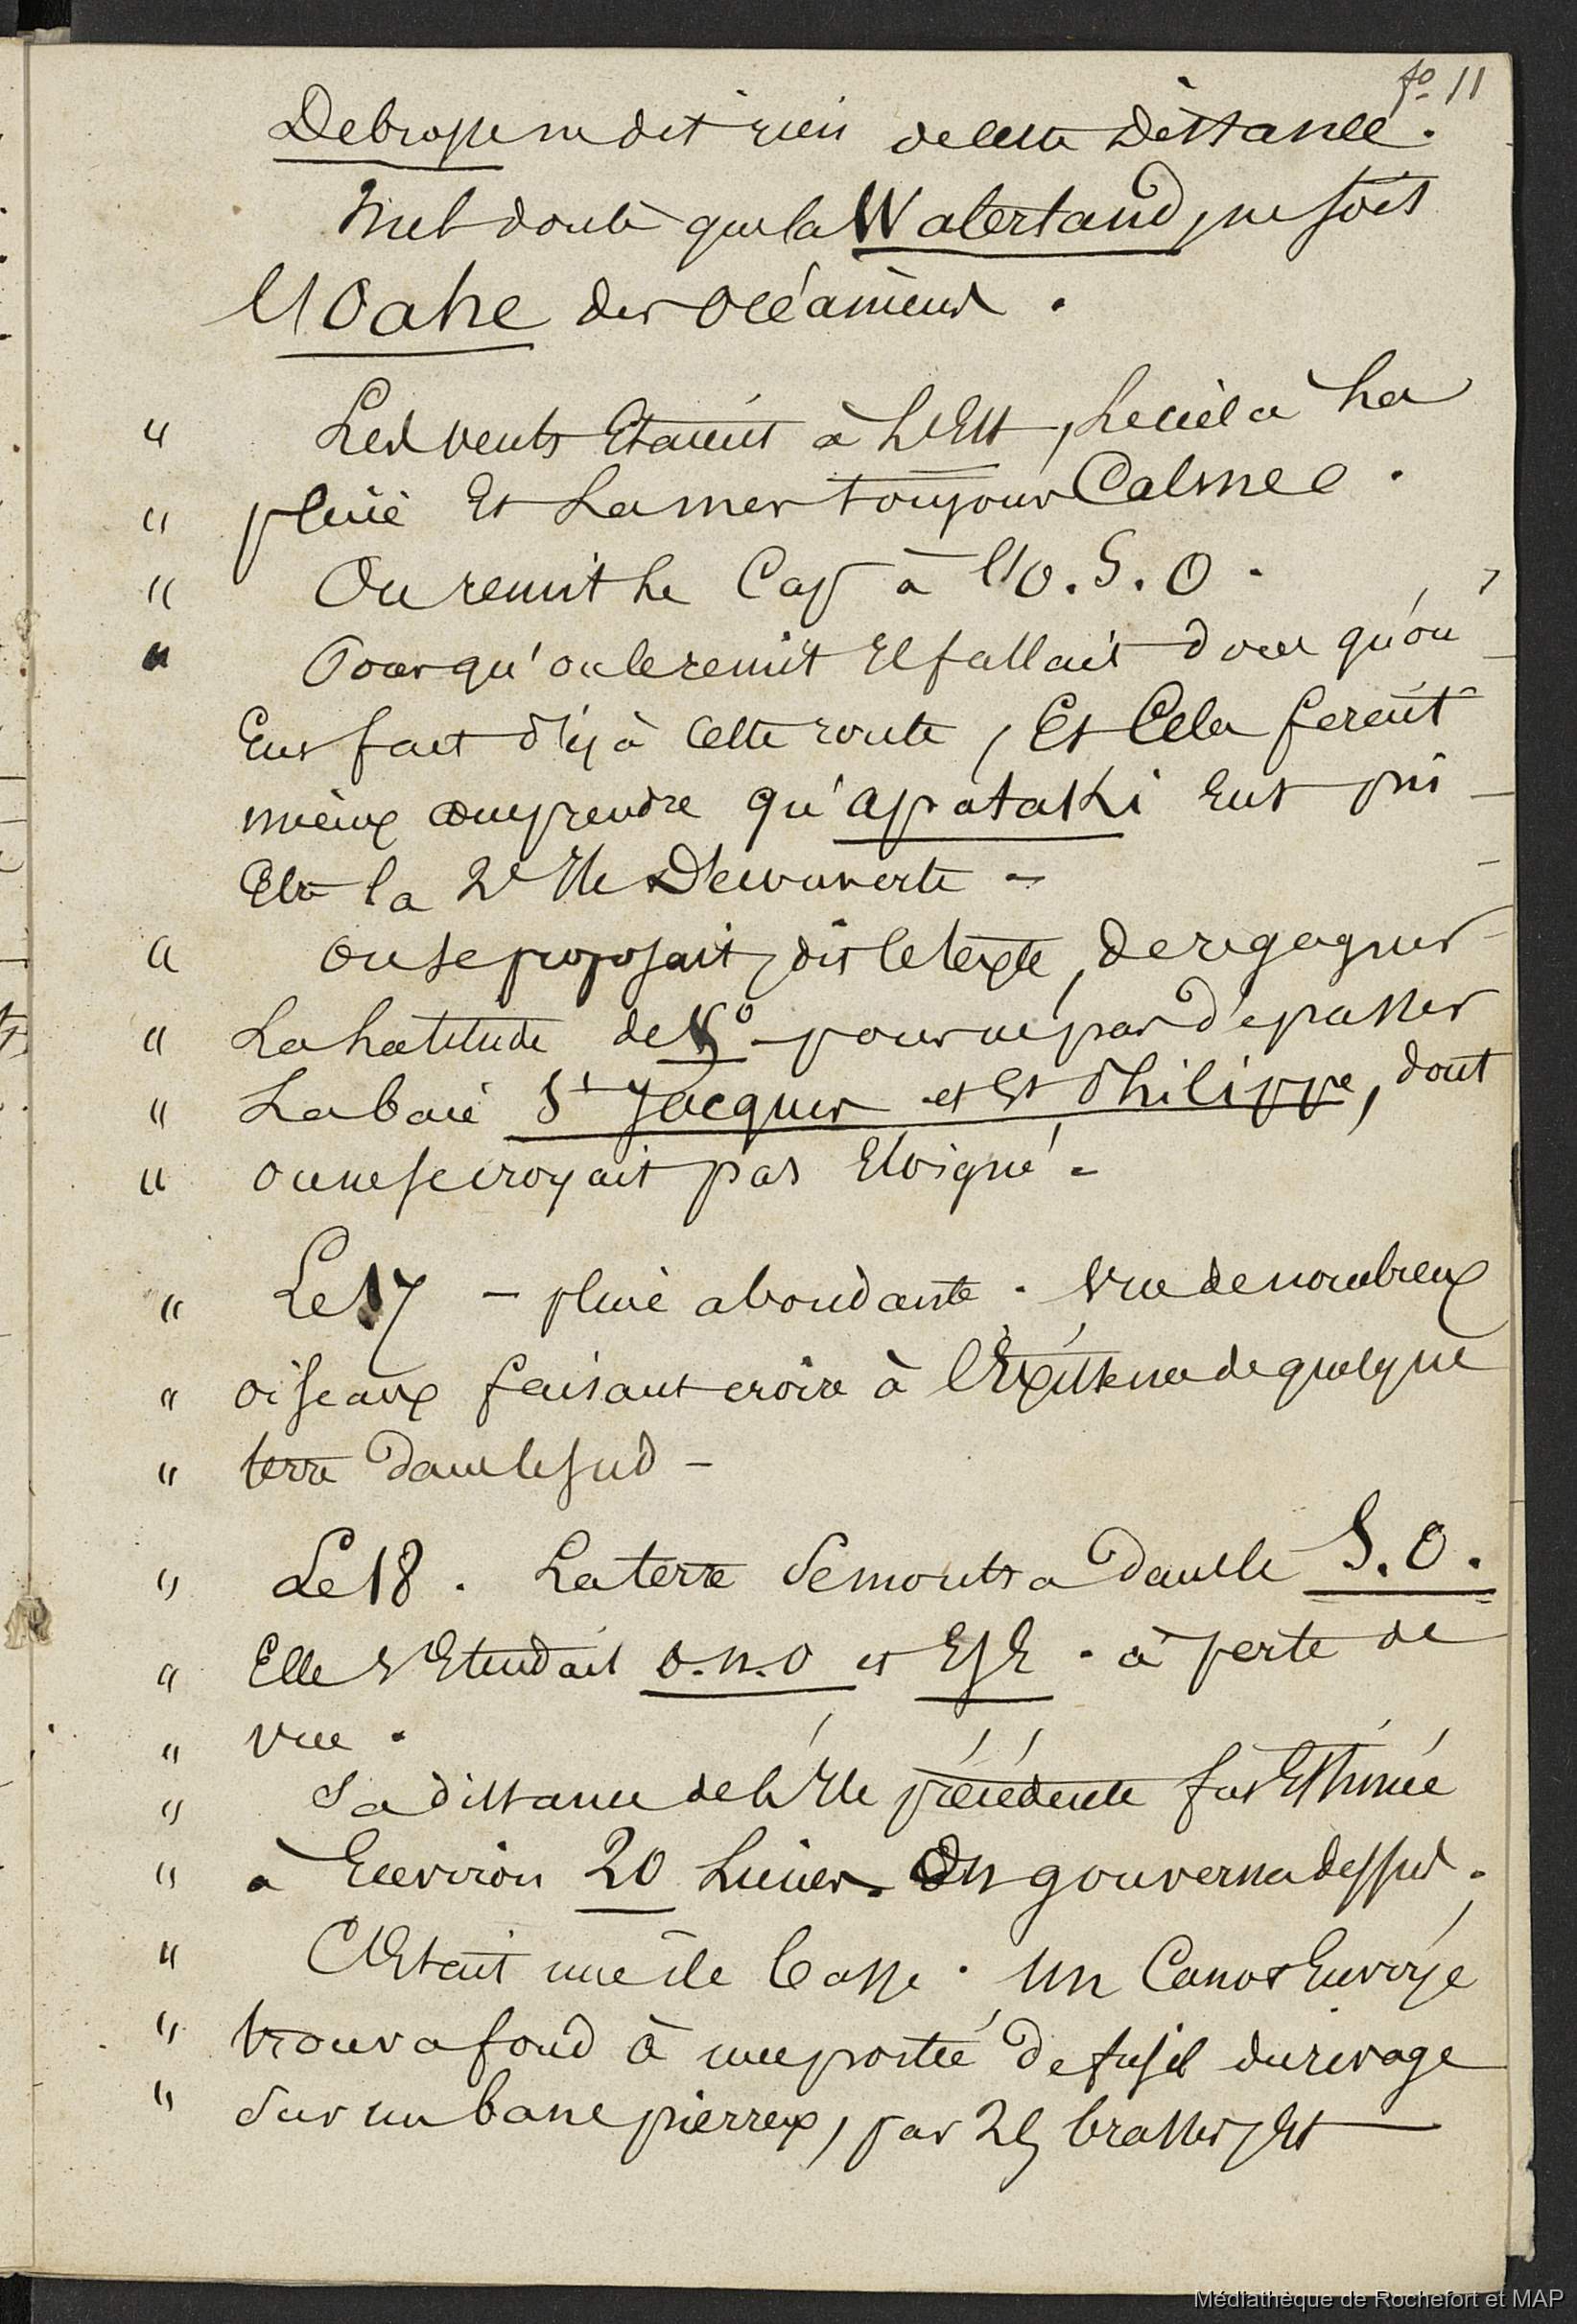 fo 11
Debrosse ne dit rien de cette Distance.
Nul doute que la Waterland, ne soit
l'Oahe des océaniens.
" Les vents Etaient à L'Est, Le ciel à La
" pluie Et La mer toujours Calme.
" On remit Le Cap à l'O.S.O.
" Pour qu'on le remit Il fallait donc qu'on
Eut fait déjà Cette route, Et Cela ferait
mieux comprendre qu'apataki Eut pu
Etre la 2e Ile Découverte –
" on se proposait, dit le texte, de regagner
" La Latitude de pour ne pas dépasser
" La baie St Jacques et St Philippe, dont
" on ne se croyait pas Eloigné –
" Le 17 – pluie abondante. Vue de nombreux
" oiseaux faisant croire à l'Existence de quelque
" terre dans le sud –
" Le 18. La terre Se montra Dans le S.O.
" Elle s'Etendait O.N.O et ESE. à perte de
" vue.
" Sa distance de L'Ile précédente fut Estimée
" à Environ 20 Lieues. On gouverna dessus.
" C'Etait une île basse. Un Canot Envoyé
" trouva fond à une portée de fusil du rivage
" Sur un banc pierreux, par 25 brasses, Et —
Médiathèque de Rochefort et MAP